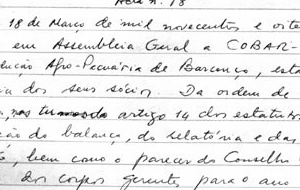 Acta n.º 18
18 de Março de mil novecentos e oite
em Assembleia Geral a COBAR-
dução Agro-Pecuária de Barcouço, esta
ia dos seus sócios. Da ordem de
, nos termos do artigo 14 dos estatutos
ção do balanço, do relatório e das
, bem como o parecer do Conselho
dos corpos gerentes para o ano